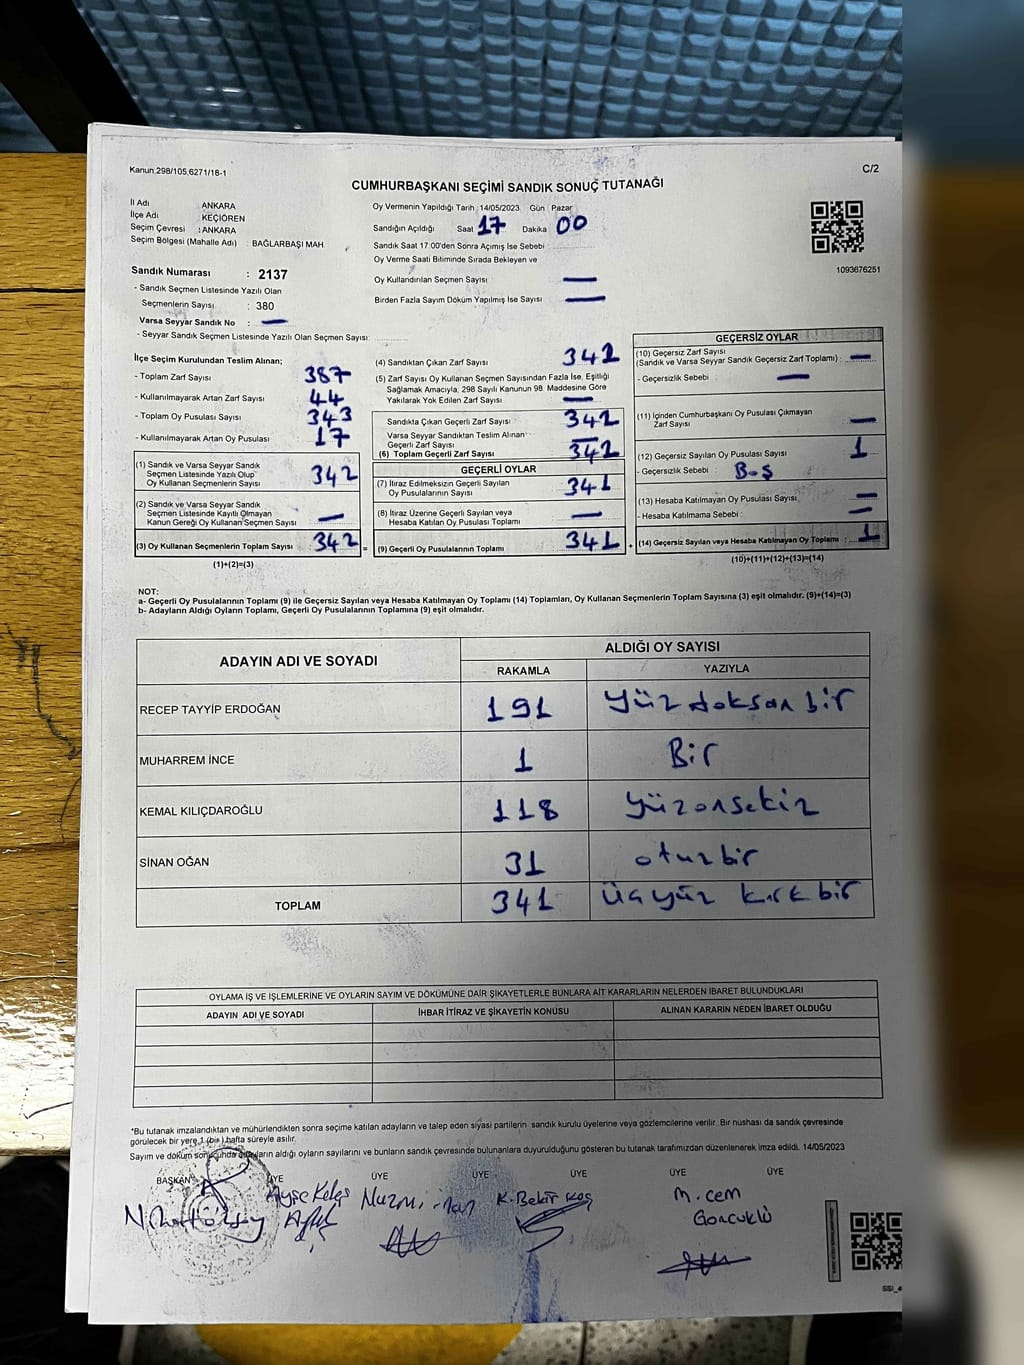 Kanun:298/105,6271/18-1
C/2
CUMHURBAŞKANI SEÇİMİ SANDIK SONUÇ TUTANAĞI
İl Adı ANKARA
İlçe Adı KEÇİÖREN
Seçim Çevresi : ANKARA
Seçim Bölgesi (Mahalle Adı) : BAĞLARBAŞI MAH.
Oy Vermenin Yapıldığı Tarih 14/05/2023 Gün Pazar
Sandığın Açıldığı Saat 17 Dakika 00
Sandık Saat 17:00'den Sonra Açımış İse Sebebi
Oy Verme Saati Bitiminde Sırada Bekleyen ve
Oy Kullandırılan Seçmen Sayısı —
Birden Fazla Sayım Döküm Yapılmış İse Sayısı —
1093676251
Sandık Numarası : 2137
- Sandık Seçmen Listesinde Yazılı Olan
Seçmenlerin Sayısı : 380
Varsa Seyyar Sandık No : —
- Seyyar Sandık Seçmen Listesinde Yazılı Olan Seçmen Sayısı:
İlçe Seçim Kurulundan Teslim Alınan;
- Toplam Zarf Sayısı 387
- Kullanılmayarak Artan Zarf Sayısı 44
- Toplam Oy Pusulası Sayısı 343
- Kullanılmayarak Artan Oy Pusulası 17
(1) Sandık ve Varsa Seyyar Sandık
Seçmen Listesinde Yazılı Olup
Oy Kullanan Seçmenlerin Sayısı 342
(2) Sandık ve Varsa Seyyar Sandık
Seçmen Listesinde Kayıtlı Olmayan
Kanun Gereği Oy Kullanan Seçmen Sayısı —
(3) Oy Kullanan Seçmenlerin Toplam Sayısı 342 =
(1)+(2)=(3)
(4) Sandıktan Çıkan Zarf Sayısı 342
(5) Zarf Sayısı Oy Kullanan Seçmen Sayısından Fazla İse, Eşitliği
Sağlamak Amacıyla; 298 Sayılı Kanunun 98. Maddesine Göre
Yakılarak Yok Edilen Zarf Sayısı —
Sandıkta Çıkan Geçerli Zarf Sayısı 342
Varsa Seyyar Sandıktan Teslim Alınan
Geçerli Zarf Sayısı —
(6) Toplam Geçerli Zarf Sayısı 342
GEÇERLİ OYLAR
(7) İtiraz Edilmeksizin Geçerli Sayılan
Oy Pusulalarının Sayısı 341
(8) İtiraz Üzerine Geçerli Sayılan veya
Hesaba Katılan Oy Pusulası Toplamı —
(9) Geçerli Oy Pusulalarının Toplamı 341 +
GEÇERSİZ OYLAR
(10) Geçersiz Zarf Sayısı
(Sandık ve Varsa Seyyar Sandık Geçersiz Zarf Toplamı) : —
- Geçersizlik Sebebi : —
(11) İçinden Cumhurbaşkanı Oy Pusulası Çıkmayan
Zarf Sayısı —
(12) Geçersiz Sayılan Oy Pusulası Sayısı 1
- Geçersizlik Sebebi : Boş
(13) Hesaba Katılmayan Oy Pusulası Sayısı —
- Hesaba Katılmama Sebebi : —
(14) Geçersiz Sayılan veya Hesaba Katılmayan Oy Toplamı : 1
(10)+(11)+(12)+(13)=(14)
NOT:
a- Geçerli Oy Pusulalarının Toplamı (9) ile Geçersiz Sayılan veya Hesaba Katılmayan Oy Toplamı (14) Toplamları, Oy Kullanan Seçmenlerin Toplam Sayısına (3) eşit olmalıdır. (9)+(14)=(3)
b- Adayların Aldığı Oyların Toplamı, Geçerli Oy Pusulalarının Toplamına (9) eşit olmalıdır.
ADAYIN ADI VE SOYADI ALDIĞI OY SAYISI
RAKAMLA YAZIYLA
RECEP TAYYİP ERDOĞAN 191 yüzdoksan bir
MUHARREM İNCE 1 Bir
KEMAL KILIÇDAROĞLU 118 yüzonsekiz
SİNAN OĞAN 31 otuzbir
TOPLAM 341 üçyüz kırkbir
OYLAMA İŞ VE İŞLEMLERİNE VE OYLARIN SAYIM VE DÖKÜMÜNE DAİR ŞİKAYETLERLE BUNLARA AİT KARARLARIN NELERDEN İBARET BULUNDUKLARI
ADAYIN ADI VE SOYADI İHBAR İTİRAZ VE ŞİKAYETİN KONUSU ALINAN KARARIN NEDEN İBARET OLDUĞU
*Bu tutanak imzalandıktan ve mühürlendikten sonra seçime katılan adayların ve talep eden siyasi partilerin sandık kurulu üyelerine veya gözlemcilerine verilir. Bir nüshası da sandık çevresinde
görülecek bir yere 1 (bir) hafta süreyle asılır.
Sayım ve döküm sonucunda adayların aldığı oyların sayılarını ve bunların sandık çevresinde bulunanlara duyurulduğunu gösteren bu tutanak tarafımızdan düzenlenerek imza edildi. 14/05/2023
BAŞKAN ÜYE ÜYE ÜYE ÜYE ÜYE ÜYE
Ayşe Keleş K. Bekir Koç M. Cem
Goncuklü